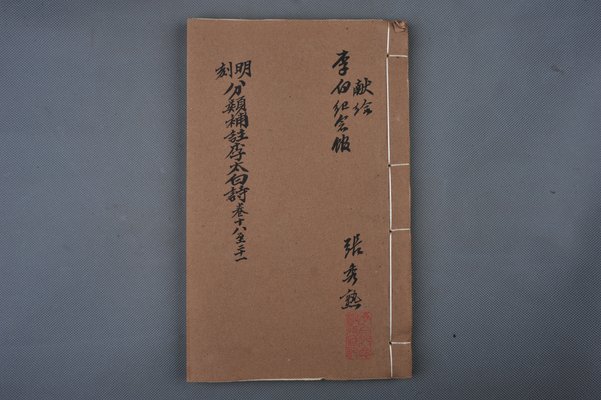 献给
李白纪念馆
张秀熟
明刻
分類補註李太白詩卷十八至二十一